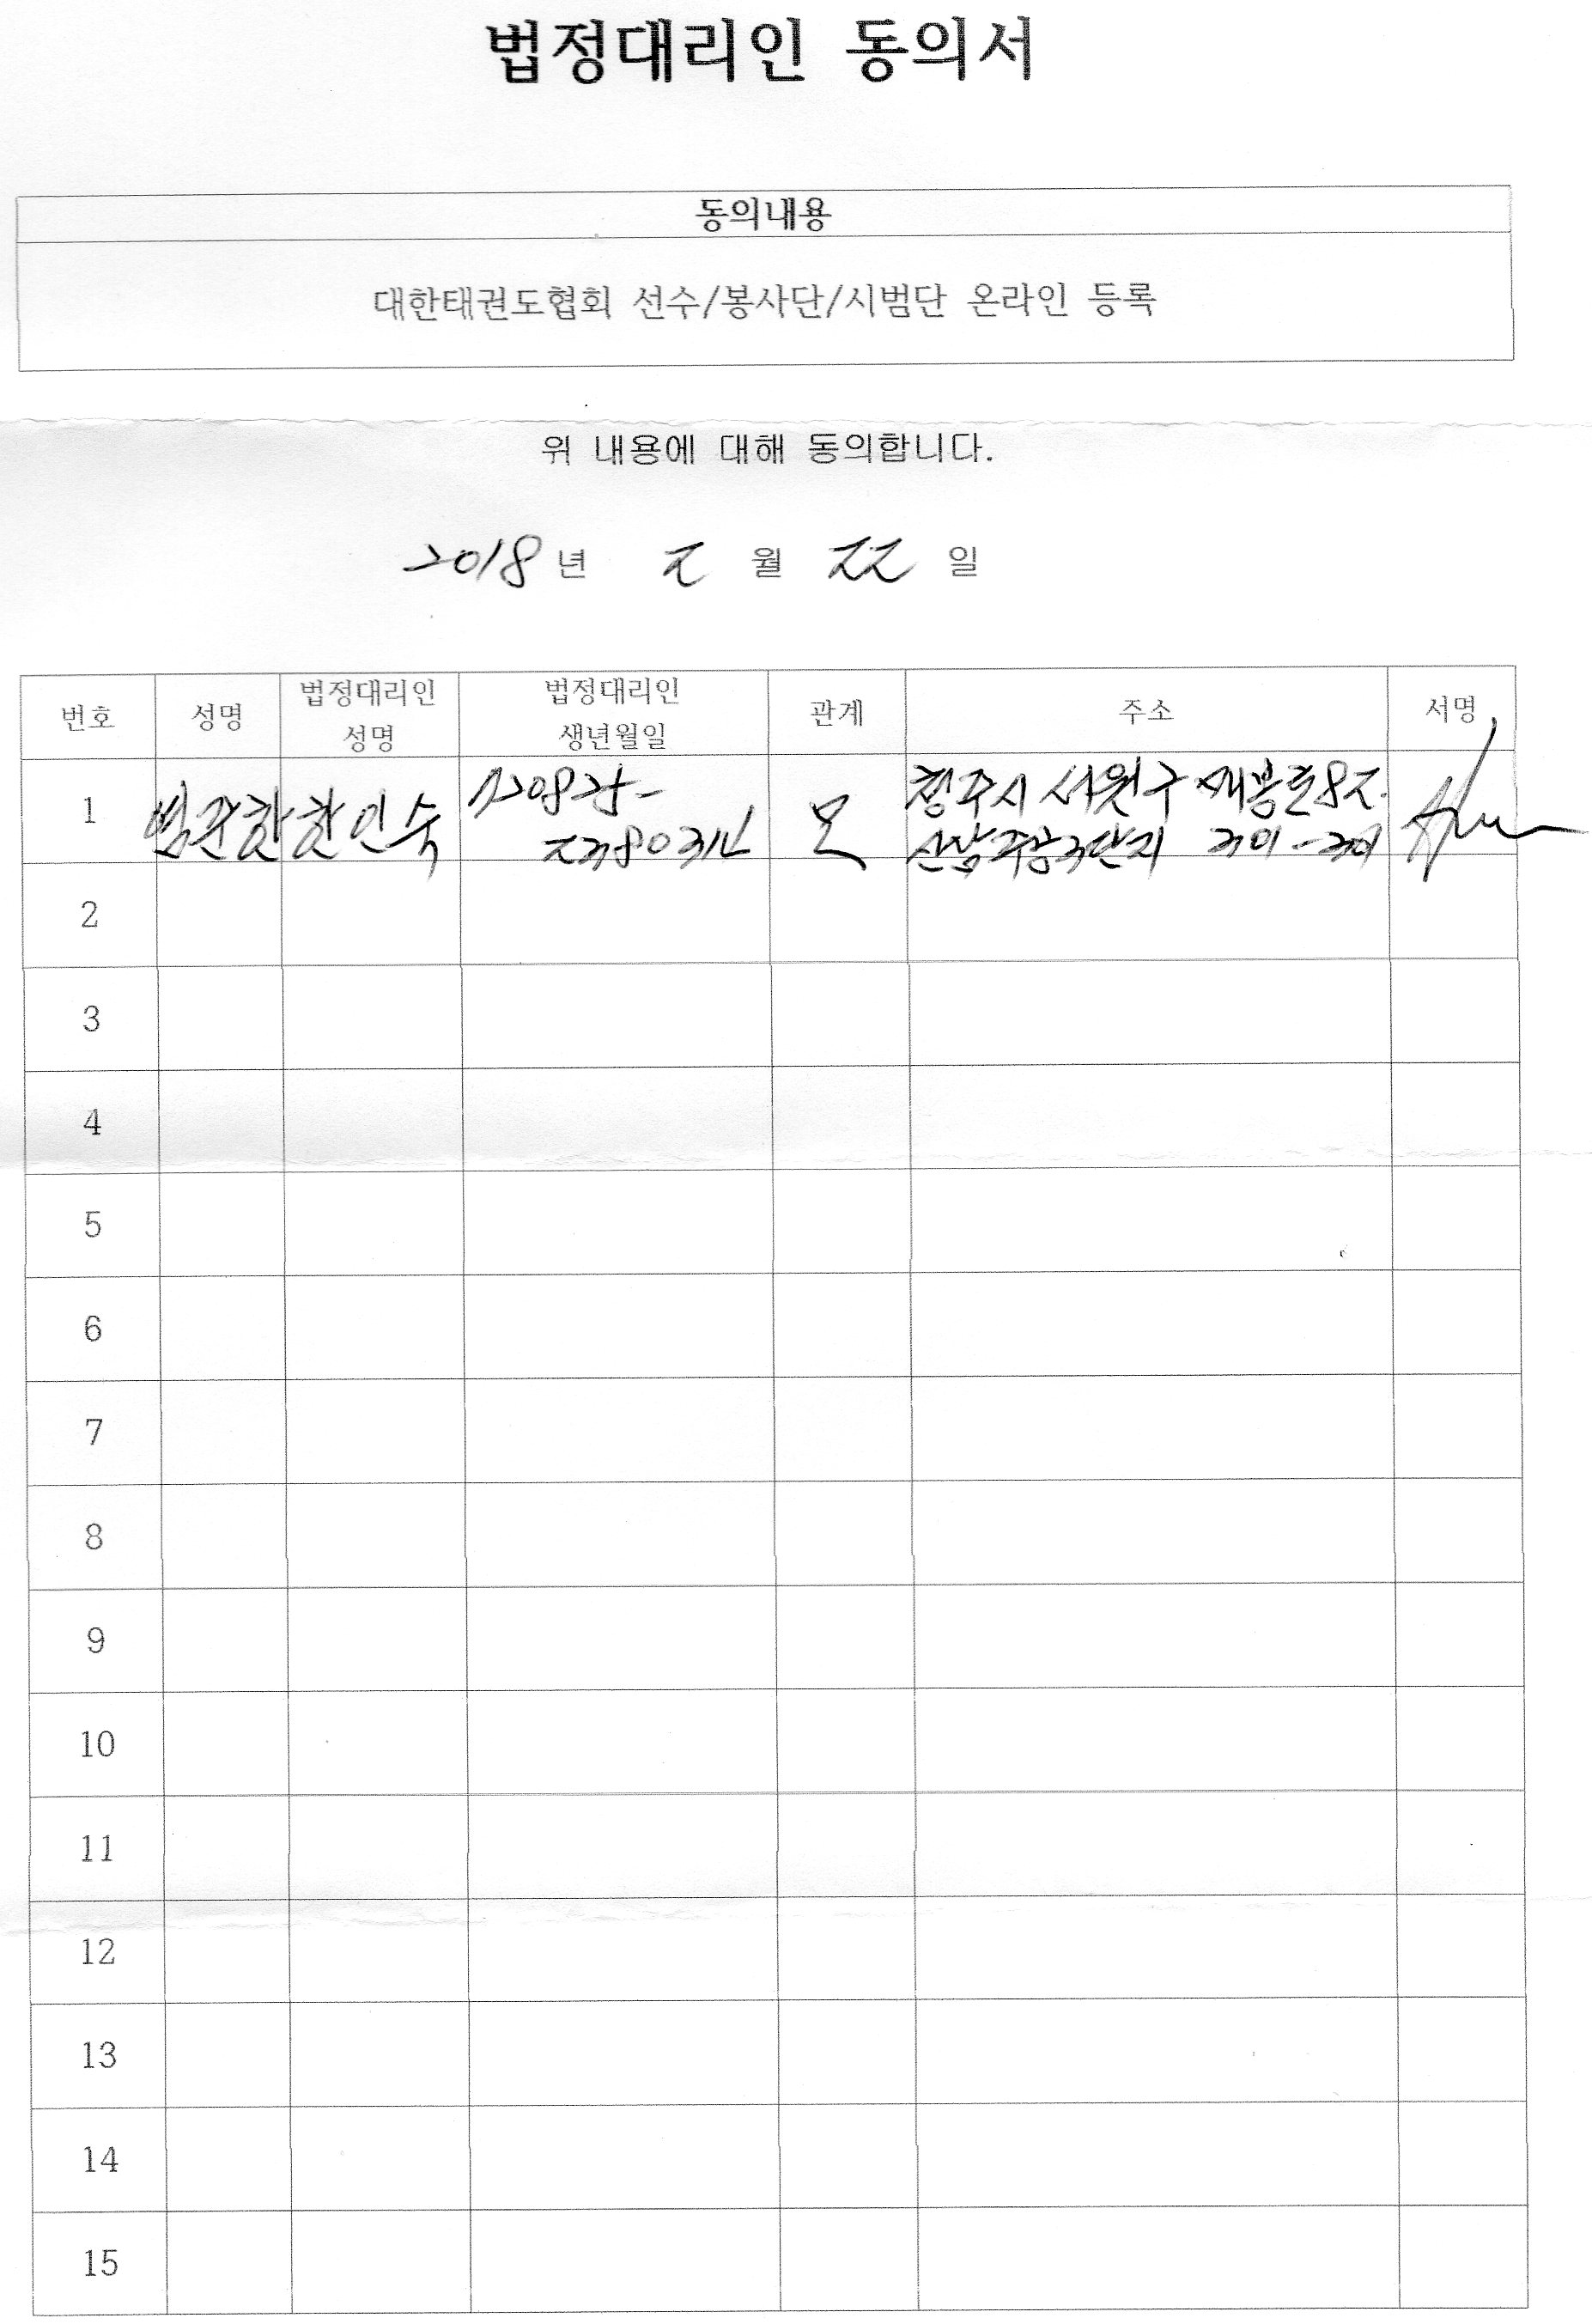 법정대리인 동의서
동의내용
대한태권도협회 선수/봉사단/시범단 온라인 등록
위 내용에 대해 동의합니다.
2018년 2 월 22 일
번호 성명 법정대리인 성명 법정대리인 생년월일 관계 주소 서명
1 인숙 모 청주시 서원구
산남주공3단지
2
3
4
5
6
7
8
9
10
11
12
13
14
15